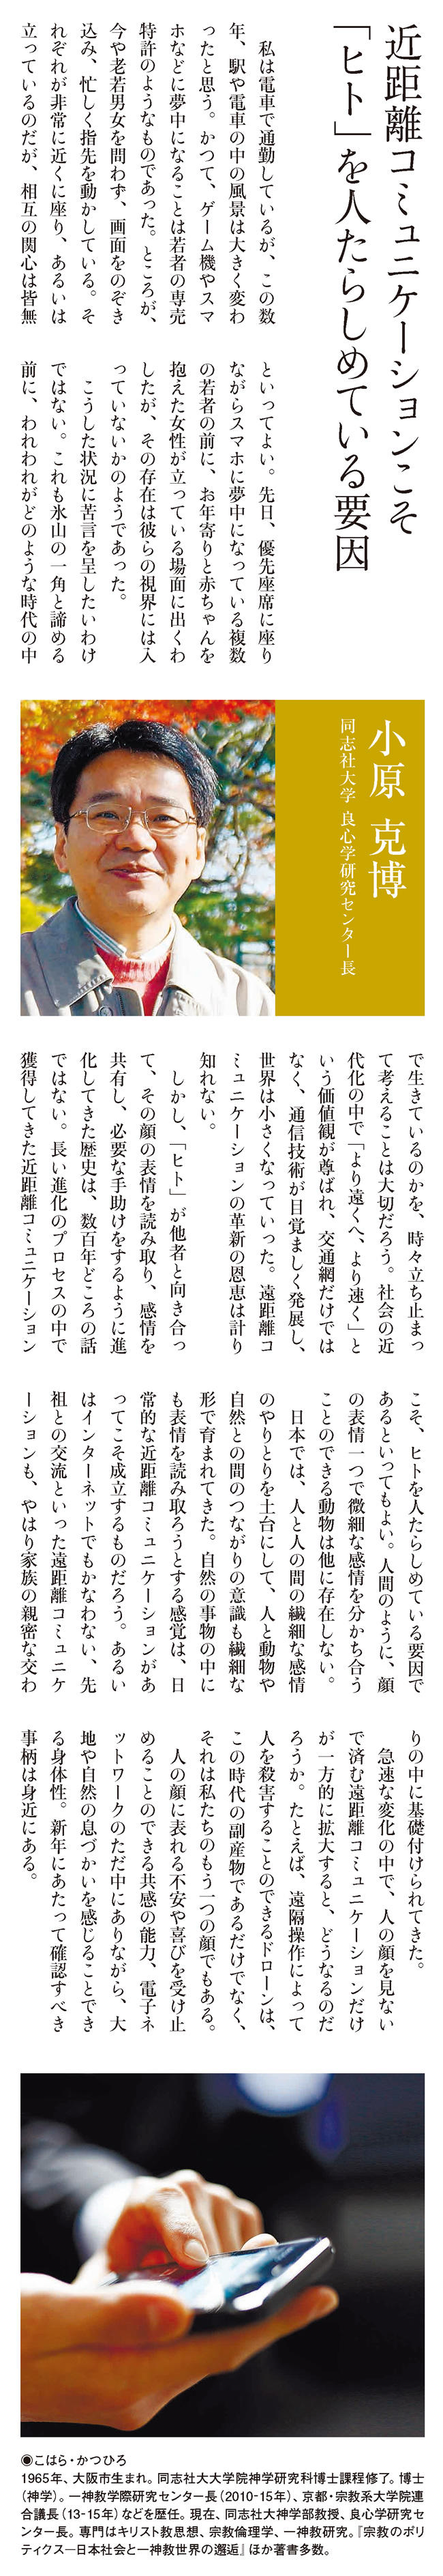 近距離コミュニケーションこそ
「ヒト」を人たらしめている要因
　私は電車で通勤しているが、この数
年、駅や電車の中の風景は大きく変わ
ったと思う。かつて、ゲーム機やスマ
ホなどに夢中になることは若者の専売
特許のようなものであった。ところが、
今や老若男女を問わず、画面をのぞき
込み、忙しく指先を動かしている。そ
れぞれが非常に近くに座り、あるいは
立っているのだが、相互の関心は皆無
といってよい。先日、優先座席に座り
ながらスマホに夢中になっている複数
の若者の前に、お年寄りと赤ちゃんを
抱えた女性が立っている場面に出くわ
したが、その存在は彼らの視界には入
っていないかのようであった。
　こうした状況に苦言を呈したいわけ
ではない。これも氷山の一角と諦める
前に、われわれがどのような時代の中
小原 克博
同志社大学 良心学研究センター長
で生きているのかを、時々立ち止まっ
て考えることは大切だろう。社会の近
代化の中で「より遠くへ、より速く」と
いう価値観が尊ばれ、交通網だけでは
なく、通信技術が目覚ましく発展し、
世界は小さくなっていった。遠距離コ
ミュニケーションの革新の恩恵は計り
知れない。
　しかし、「ヒト」が他者と向き合っ
て、その顔の表情を読み取り、感情を
共有し、必要な手助けをするように進
化してきた歴史は、数百年どころの話
ではない。長い進化のプロセスの中で
獲得してきた近距離コミュニケーション
こそ、ヒトを人たらしめている要因で
あるといってもよい。人間のように、顔
の表情一つで微細な感情を分かち合う
ことのできる動物は他に存在しない。
　日本では、人と人の間の繊細な感情
のやりとりを土台にして、人と動物や
自然との間のつながりの意識も繊細な
形で育まれてきた。自然の事物の中に
も表情を読み取ろうとする感覚は、日
常的な近距離コミュニケーションがあ
ってこそ成立するものだろう。あるい
はインターネットでもかなわない、先
祖との交流といった遠距離コミュニケ
ーションも、やはり家族の親密な交わ
りの中に基礎付けられてきた。
　急速な変化の中で、人の顔を見ない
で済む遠距離コミュニケーションだけ
が一方的に拡大すると、どうなるのだ
ろうか。たとえば、遠隔操作によって
人を殺害することのできるドローンは、
この時代の副産物であるだけでなく、
それは私たちのもう一つの顔でもある。
　人の顔に表れる不安や喜びを受け止
めることのできる共感の能力、電子ネ
ットワークのただ中にありながら、大
地や自然の息づかいを感じることでき
る身体性。新年にあたって確認すべき
事柄は身近にある。
◉こはら・かつひろ
1965年、大阪市生まれ。同志社大大学院神学研究科博士課程修了。博士
（神学）。一神教学際研究センター長（2010-15年）、京都・宗教系大学院連
合議長（13-15年）などを歴任。現在、同志社大神学部教授、良心学研究セ
ンター長。専門はキリスト教思想、宗教倫理学、一神教研究。『宗教のポリ
ティクス―日本社会と一神教世界の邂逅』ほか著書多数。